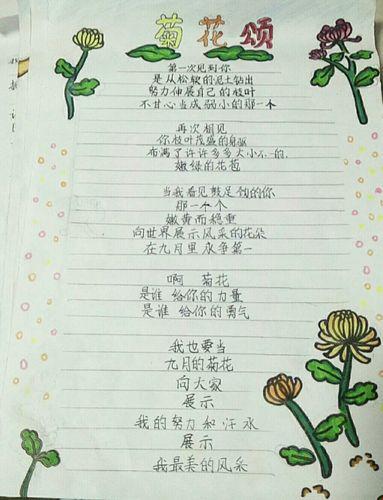 菊花颂
第一次见到你
是从松软的泥土钻出
努力伸展自己的枝叶
不甘心当成弱小的那一个
再次相见
你枝叶茂盛的身躯
布满了许许多多大小不一的,
嫩绿的花苞
当我看见鼓足劲的你
那一个个
嫩黄而稳重
向世界展示风采的花朵
在九月里永争第一
啊 菊花
是谁 给你的力量
是谁 给你的勇气
我也要当
九月的菊花
向大家
展示
我的努力和汗水
展示
我最美的风采